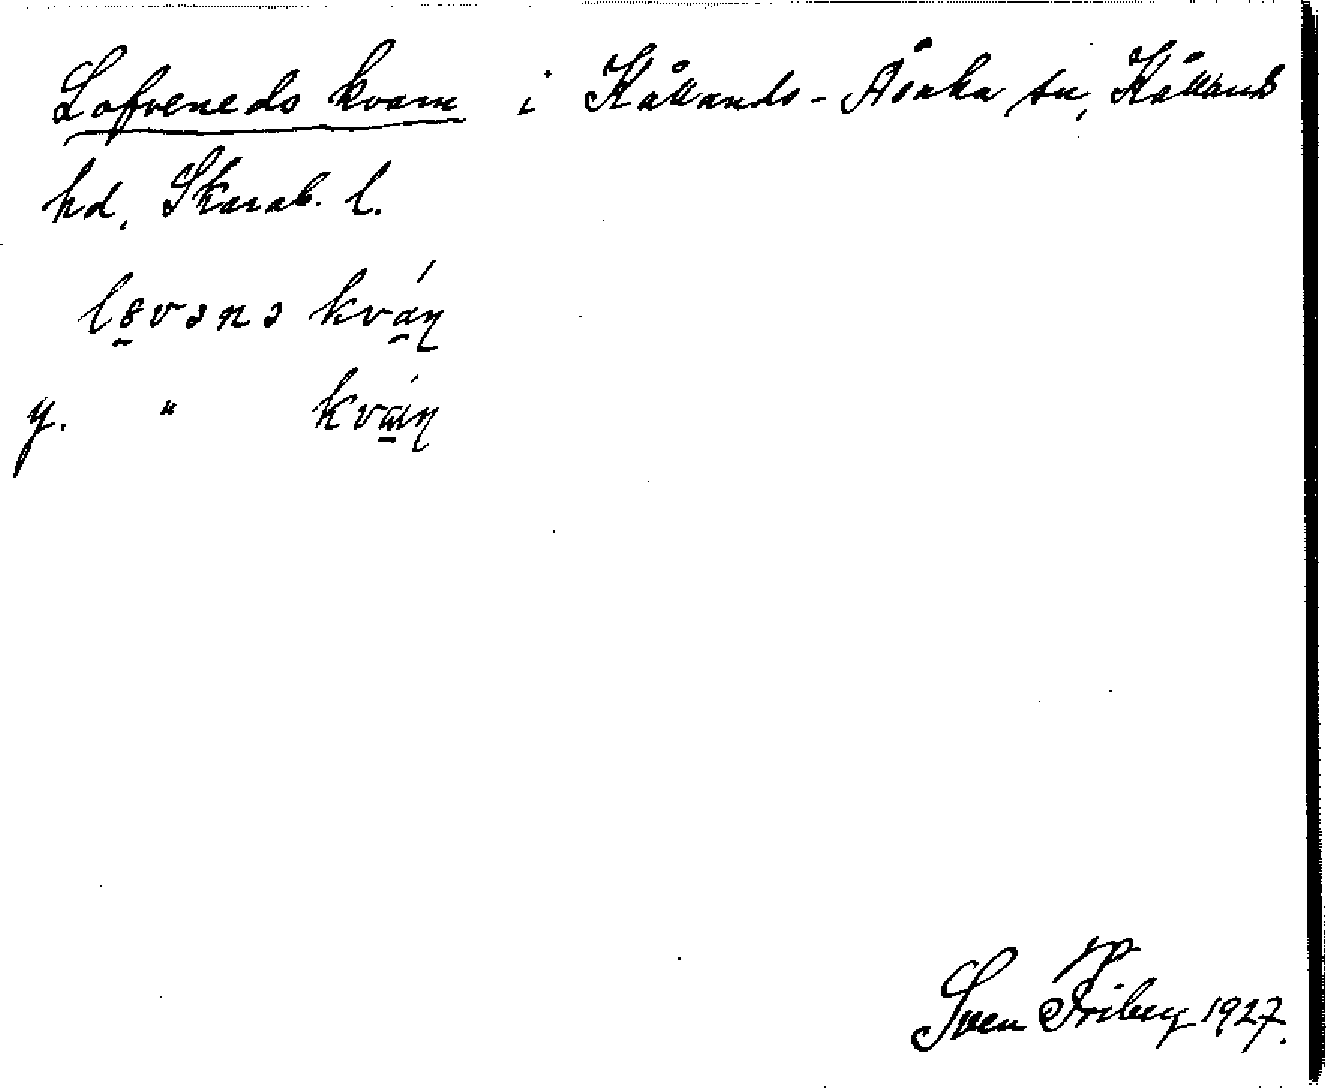 Lofveneds kvarn i Kållands-Åsaka sn, Kållands
hd, Skarab. l.
l8vənə kván
y. " kván
Sven Friberg 1927.